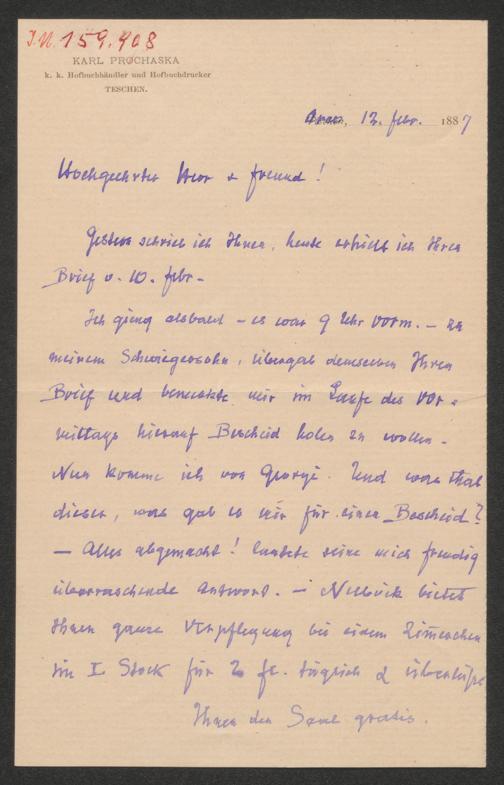 I.N. 159.908
KARL PROCHASKA
k. k. Hofbuchhändler und Hofbuchdrucker
TESCHEN.
12. febr. 1887
Hochgeehrter Herr & freund!
Gestern schrieb ich Ihnen, heute erhielt ich Ihren
Brief v. 10. febr.
Ich gieng alsbald – es war 9 Uhr vorm. – zu
meinem Schwiegersohn, übergab demselben Ihren
Brief und bemerkte mir im Laufe des Vor-
mittags hierauf Bescheid holen zu wollen.
Nun komme ich von George. Und was that
dieser, was gab er mir für einen Bescheid?
– Alles abgemacht! lautete seine mich freudig
überraschende Antwort. – bietet
Ihnen ganze Verpflegung bei einem Zimmerchen
im I. Stock für 2 fl. täglich &
Ihnen den Saal gratis.